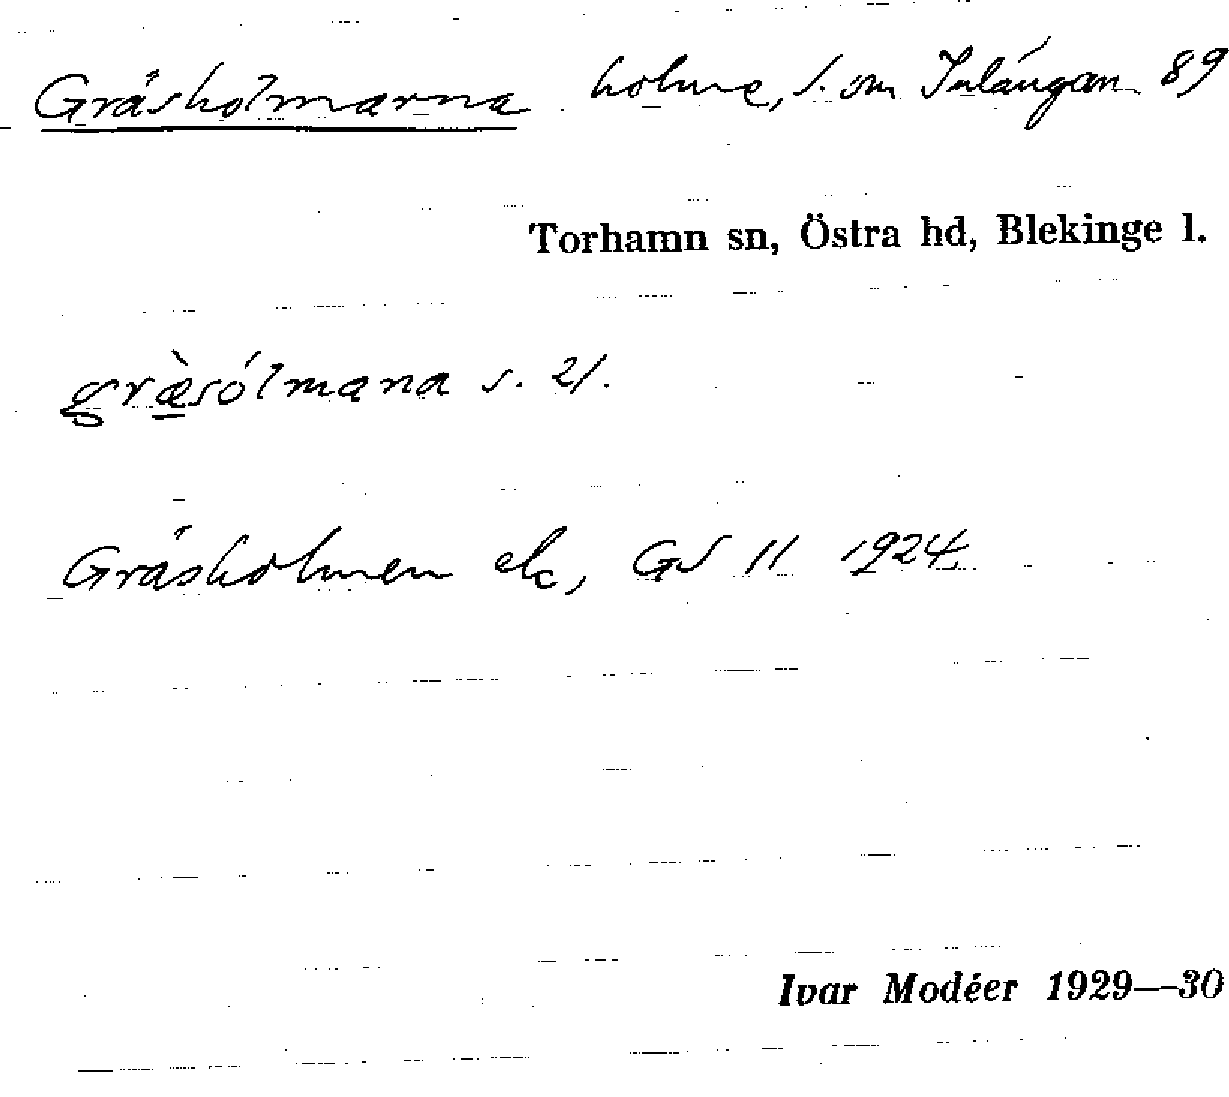 Gräsholmarna holme, S. om Inlängan 89
Torhamn sn, Östra hd, Blekinge l.
græ̀sólmana s. 21.
Gräsholmen etc, GS 11 1924
Ivar Modéer 1929—30